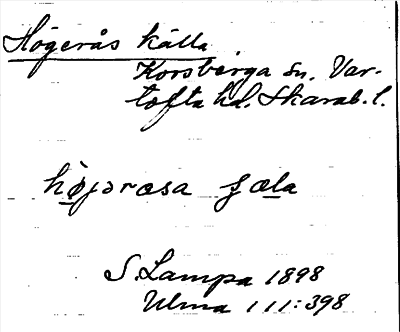 Högerås källa
Korsberga sn. Var-
tofta hd. Skarab. l.
S. Lampa 1898
Ulma 111:398